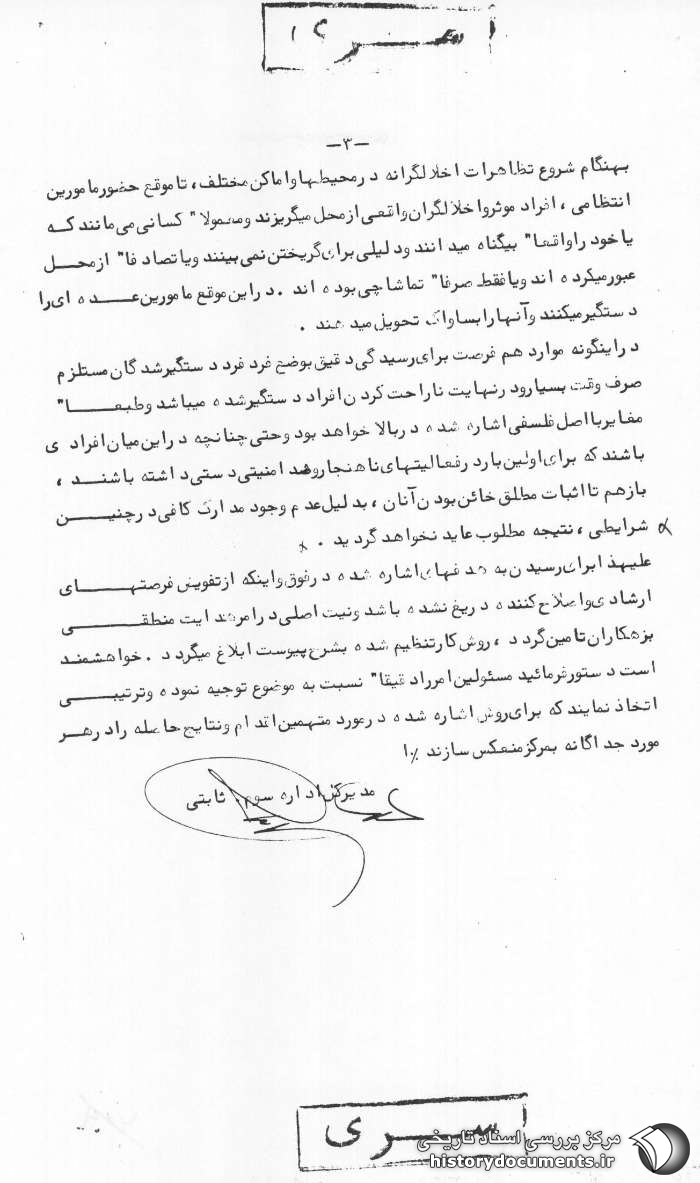 سری
-۳-
بهنگام شروع تظاهرات اخلالگرانه در محیطها و اماکن مختلف، تا موقع حضور مامورین
انتظامی، افراد موثر و اخلالگران واقعی از محل میگریزند و معمولا" کسانی می مانند که
یا خود را واقعا" بیگناه میدانند و دلیلی برای گریختن نمی بینند و یا تصادفا" از محل
عبور میکرده اند و یا فقط صرفا" تماشاچی بوده اند . در این موقع مامورین عده ای را
دستگیر میکنند و آنها را بساواک تحویل میدهند .
در اینگونه موارد هم فرصت برای رسیدگی دقیق بوضع فرد فرد دستگیرشدگان مستلزم
صرف وقت بسیار و در نهایت ناراحت کردن افراد دستگیر شده میباشد و طبعا"
مغایر با اصل فلسفی اشاره شده در بالا خواهد بود و حتی چنانچه در این میان افرادی
باشند که برای اولین بار در فعالیتهای ناهنجار و ضد امنیتی دستی داشته باشند ،
بازهم تا اثبات مطلق خائن بودن آنان ، بدلیل عدم وجود مدارک کافی در چنین
شرایطی ، نتیجه مطلوب عاید نخواهد گردید .
علیهذا برای رسیدن به هدفهای اشاره شده در فوق و اینکه از تفویض فرصتهای
ارشادی و اصلاح کننده دریغ نشده باشد و نیت اصلی در امر هدایت منطقی
بزهکاران تامین گردد ، روش کار تنظیم شده بشرح پیوست ابلاغ میگردد . خواهشمند
است دستور فرمائید مسئولین امر را دقیقا" نسبت به موضوع توجیه نموده و ترتیبی
اتخاذ نمایند که برای روش اشاره شده در مورد متهمین اقدام و نتایج حاصله را در هر
مورد جداگانه بمرکز منعکس سازند
مدیرکل اداره سوم. ثابتی
سری
مرکز بررسی اسناد تاریخی
historydocuments.ir